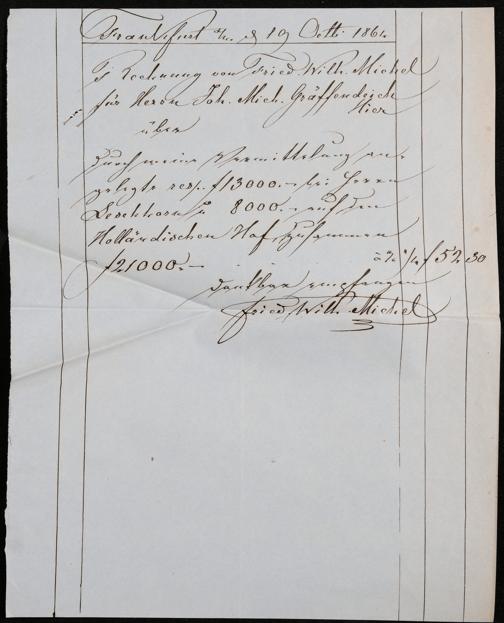 Frankfurt a/m d 19 Octb. 1861.
Rechnung von Fried. Wilh. Michel
für Herrn Joh. Mich. Gräffendeich
Hier
über
Durch meine Vermittelung an-
gelegte resp. f 13000.— bei Herrn
Leschhorn u. 8000.— auf den
Holländischen Hof, zusammen
f 21000.— à ¼ % f 52 30
dankbar empfangen
Fried. Wilh. Michel